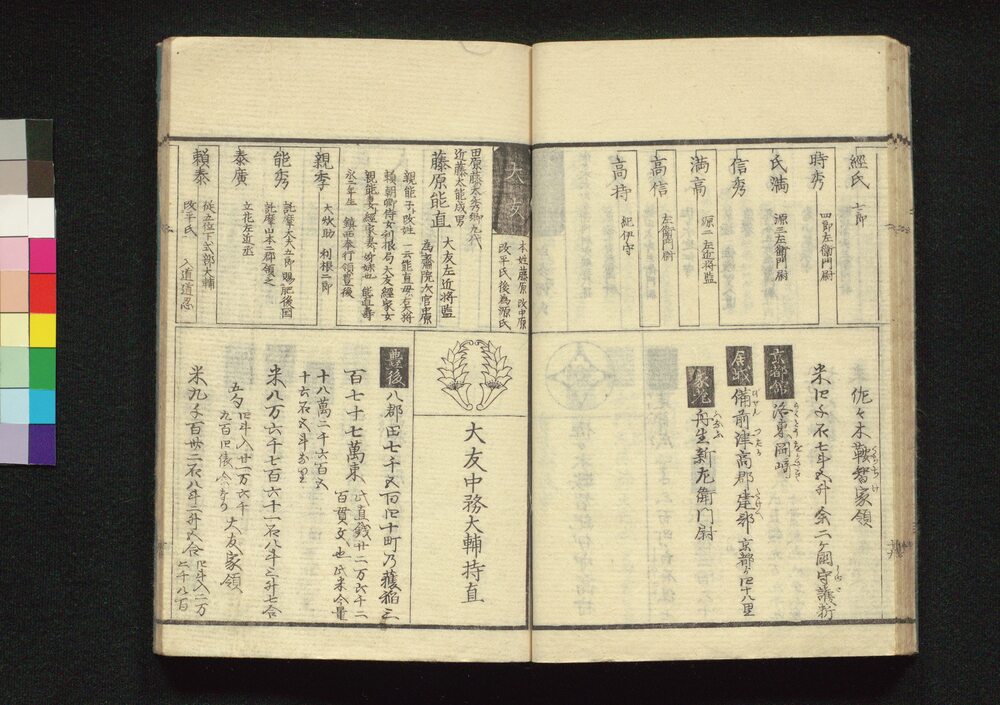 經氏 七郎
時秀 四郎左衛門尉
氏満 源三左衛門尉
信秀
満高 源二左近将監
高信 左衛門尉
高持 紀伊守
佐々木鞍智家領
米四千石七斗五升余二ケ国守護料
京都館 洛東岡崎
居城 備前津高郡建部京都ヨリ四十八里
舟生新左衛門尉
大友
本姓藤原改中原
改平氏後為源氏
田原藤太秀郷九代
近藤太能成男
藤原能直 大友左近将監
為齋院次官中原
親能子改姓一云能直母右大将
頼朝卿侍女利根局大友經家女
親能妻經家妻姉妹也能直壽
永二年生 鎮西奉行領豊後
親秀 大炊助 利根二郎
能秀 託摩大夫五郎賜肥後国
託摩山本二郡領之
泰廣 立花左近丞
頼泰 従五位下式部大輔
改平氏 入道道忍
大友中務大輔持直
豊後 八郡田七千五百四十町乃穫稲三
百七十七萬束 此直銭廿二万六千二
百貫文也此米今量
十八萬二千六百五
十六石五斗五升
米八万六千七百六十一石八斗三升七合
大友家領
米九千百廿二石八斗二升五合